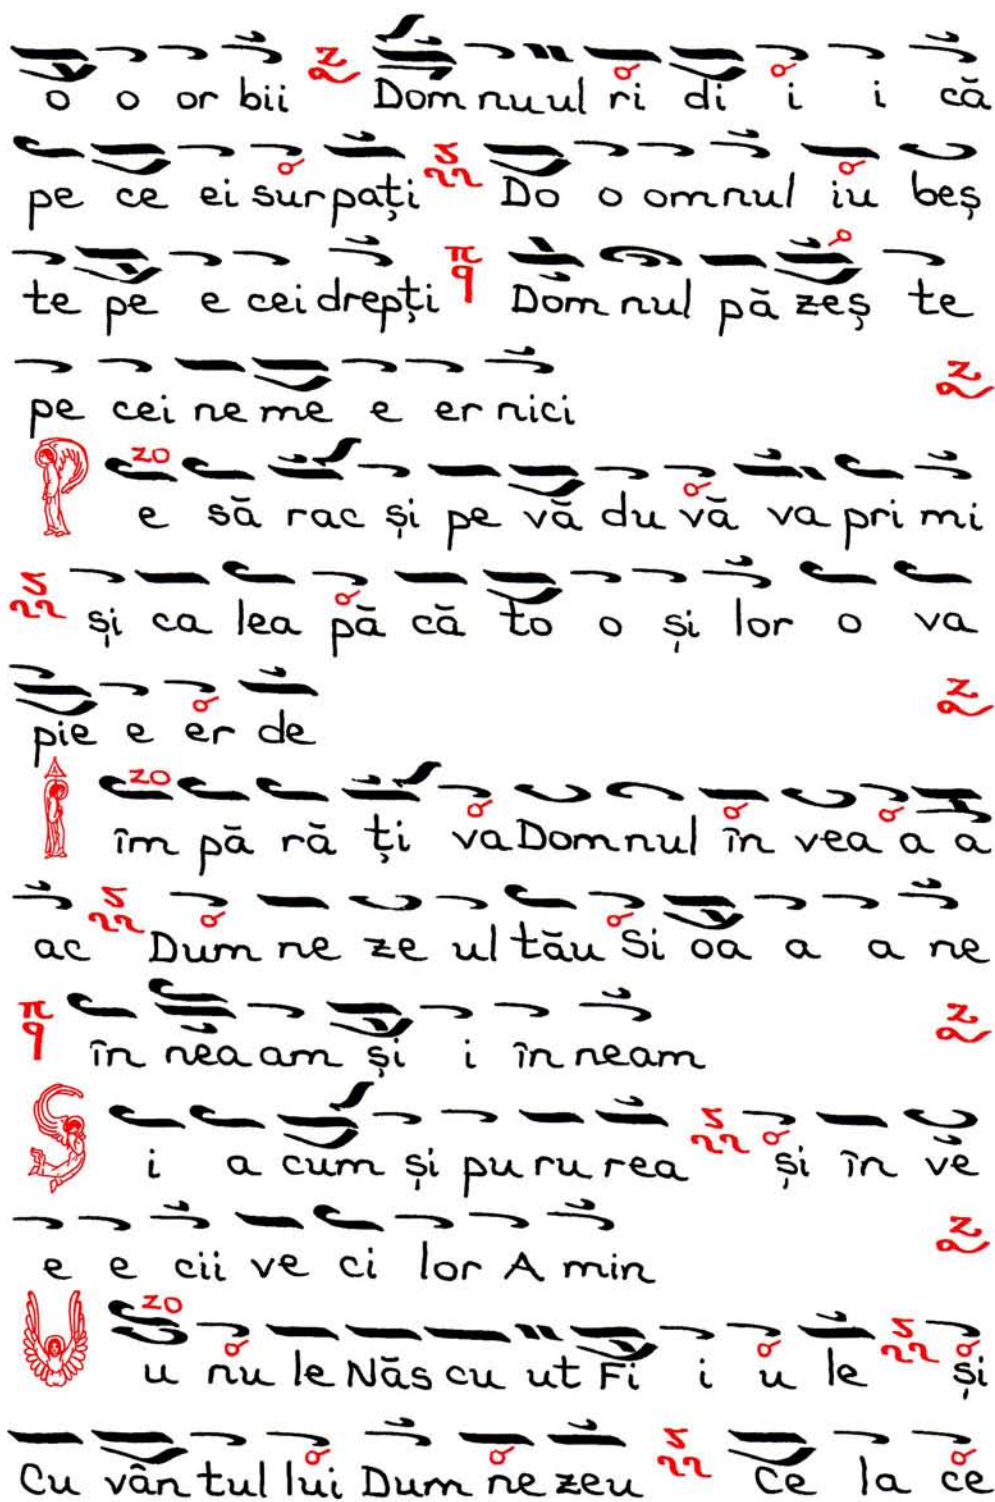 o o or bii Dom nu ul ri di i i că
pe ce ei sur pați Do o omnul iu beș
te pe e cei drepți Dom nul pă zeș te
pe cei ne me e er nici
P e să rac și pe vă du vă va pri mi
și ca lea pă că to o și lor o va
pie e er de
Î îm pă ră ți va Domnul în vea a a
ac Dum ne ze ul tău Si oa a a ne
în nea am și i în neam
S i a cum și pu ru rea și în ve
e e cii ve ci lor A min
U u nu le Năs cu ut Fi i u le și
Cu vân tul lui Dum ne zeu Ce la ce